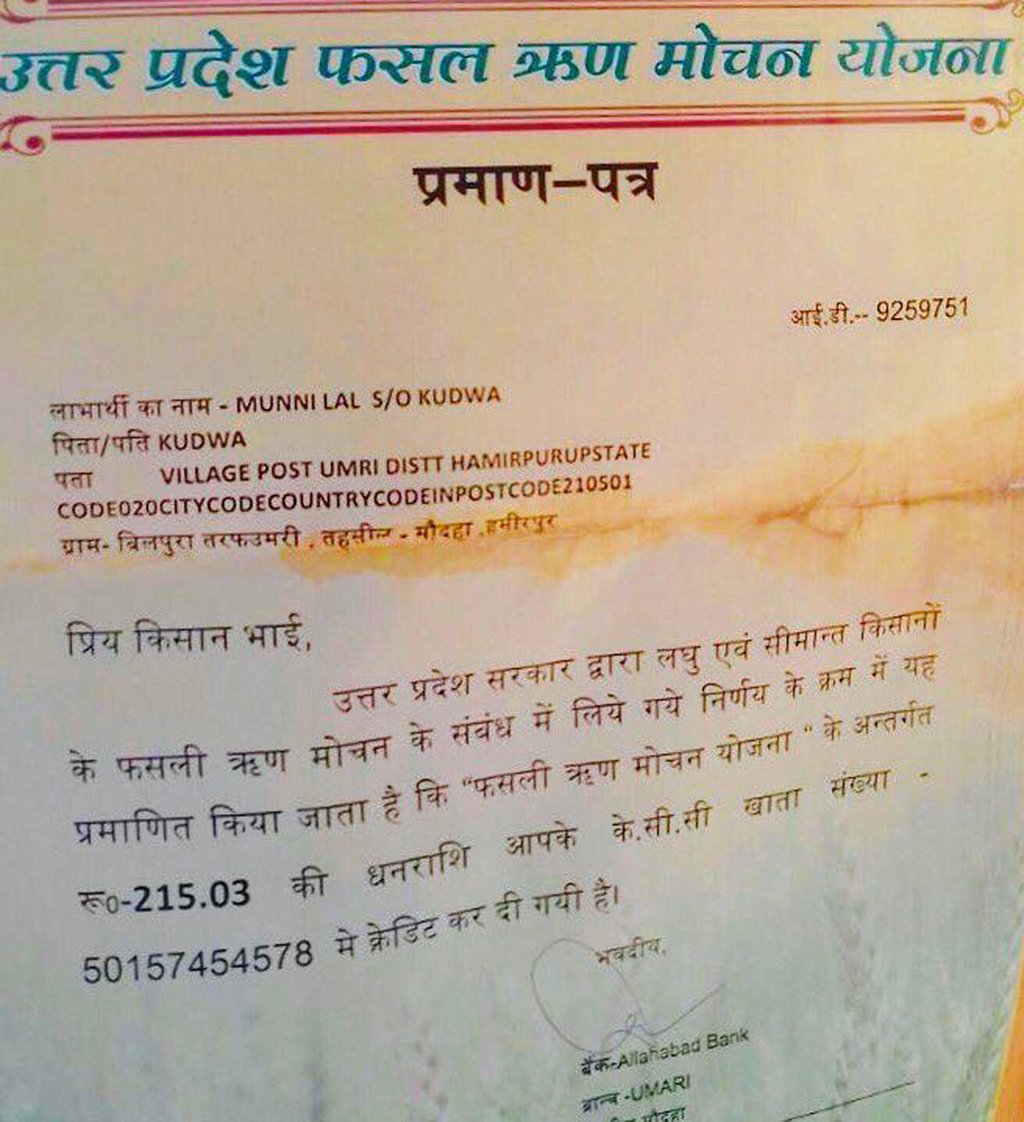 उत्तर प्रदेश फसल ऋण मोचन योजना
प्रमाण–पत्र
आई.डी.-- 9259751
लाभार्थी का नाम - MUNNI LAL S/O KUDWA
पिता/पति KUDWA
पता VILLAGE POST UMRI DISTT HAMIRPURUPSTATE
CODE020CITYCODECOUNTRYCODEINPOSTCODE210501
ग्राम- बिलपुरा तरफउमरी , तहसील - मौदहा ,हमीरपुर
प्रिय किसान भाई,
उत्तर प्रदेश सरकार द्वारा लघु एवं सीमान्त किसानों
के फसली ऋण मोचन के संबंध में लिये गये निर्णय के क्रम में यह
प्रमाणित किया जाता है कि "फसली ऋण मोचन योजना " के अन्तर्गत
रू0-215.03 की धनराशि आपके के.सी.सी खाता संख्या -
50157454578 मे क्रेडिट कर दी गयी है।
भवदीय,
बैंक-Allahabad Bank
ब्रान्च -UMARI
मौदहा